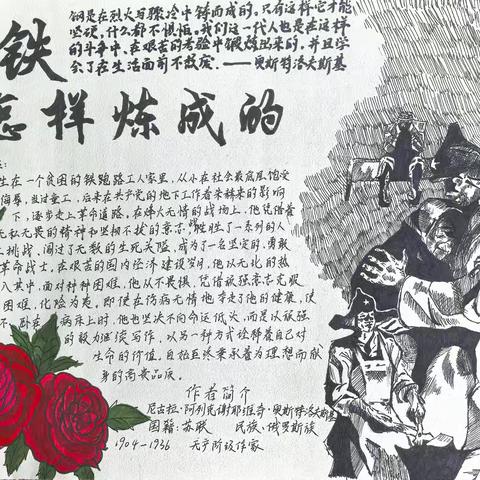 钢是在烈火与骤冷中铸而成的。只有这样它才能
坚硬，什么都不惧怕。我们这一代人也是在这样
的斗争中、在艰苦的考验中锻炼出来的，并且学
会了在生活面前不颓废。——奥斯特洛夫斯基
铁
怎样炼成的
生在一个贫困的铁路工人家里，从小在社会最底层饱受
侮辱，当过童工，后来在共产党的地下工作者朱赫来的影响
下，逐步走上革命道路，在烽火无情的战场上，他凭借着
无私无畏的精神和坚韧不拔的意志，战胜了一系列的人
生挑战，闯过了无数的生死关隘，成为了一名坚定的、勇敢
革命战士，在艰苦的国内经济建设岁月，他以无比的热
入其中，面对种种困难，他从不畏惧，凭借顽强意志克服
困难，化险为夷，即使在伤病无情地夺走了他的健康，使
不，卧在病床上时，他也坚决不向命运低头，而是以顽强
的毅力继续写作，以另一种方式诠释着自己对
生命的价值。自始至终秉承着为理想而献
身的高贵品质。
作者简介
尼古拉·阿列克谢耶维奇·奥斯特洛夫斯基
国籍：苏联 民族：俄罗斯族
1904-1936 无产阶级作家